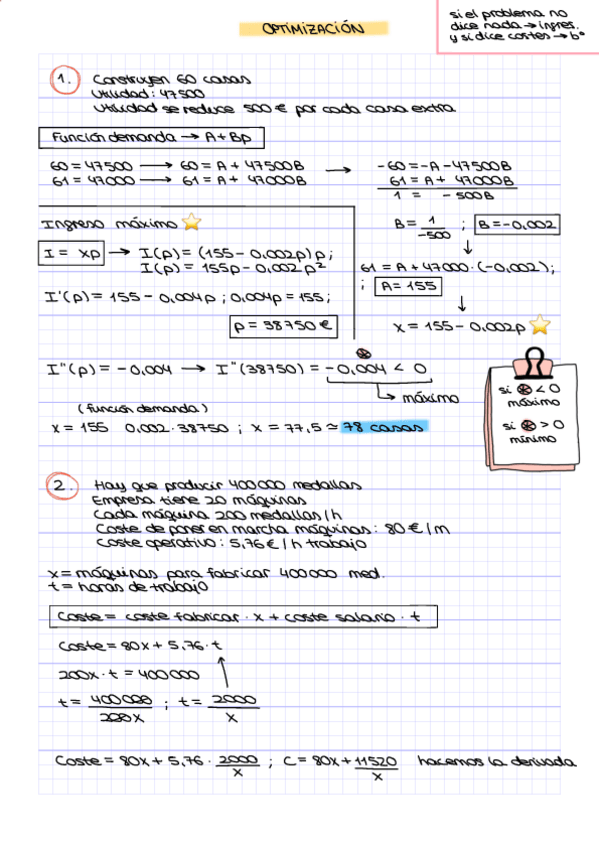 OPTIMIZACIÓN
si el problema no
dice nada → ingres.
y si dice costes → bº
1. Construyen 60 casas
Utilidad: 47500
Utilidad se reduce 500 € por cada casa extra
Función demanda → A+Bp
60 = 47500 → 60 = A + 47500B → -60 = -A - 47500B
61 = 47000 → 61 = A + 47000B 61 = A + 47000B
1 = - 500B
Ingreso máximo ⭐
B = 1/-500 ; B = -0,002
I = xp → I(p) = (155 - 0,002p) p ;
I(p) = 155p - 0,002p²
61 = A + 47000 · (-0,002) ;
; A = 155
I'(p) = 155 - 0,004p ; 0,004p = 155 ;
p = 38750 €
x = 155 - 0,002p ⭐
I''(p) = -0,004 → I''(38750) = -0,004 < 0
máximo
(función demanda)
x = 155 0,002·38750 ; x = 77,5 ≃ 78 casas
si ⊛ < 0
máximo
si ⊛ > 0
mínimo
2. Hay que producir 400000 medallas
Empresa tiene 20 máquinas
Cada máquina 200 medallas/h
Coste de poner en marcha máquinas: 80 €/m
Coste operativo: 5,76 €/h trabajo
x = máquinas para fabricar 400000 med.
t = horas de trabajo
Coste = coste fabricar · x + coste salario · t
Coste = 80x + 5,76 · t
200x · t = 400000
t = 400000/200x ; t = 2000/x
Coste = 80x + 5,76 · 2000/x ; C = 80x + 11520/x hacemos la derivada